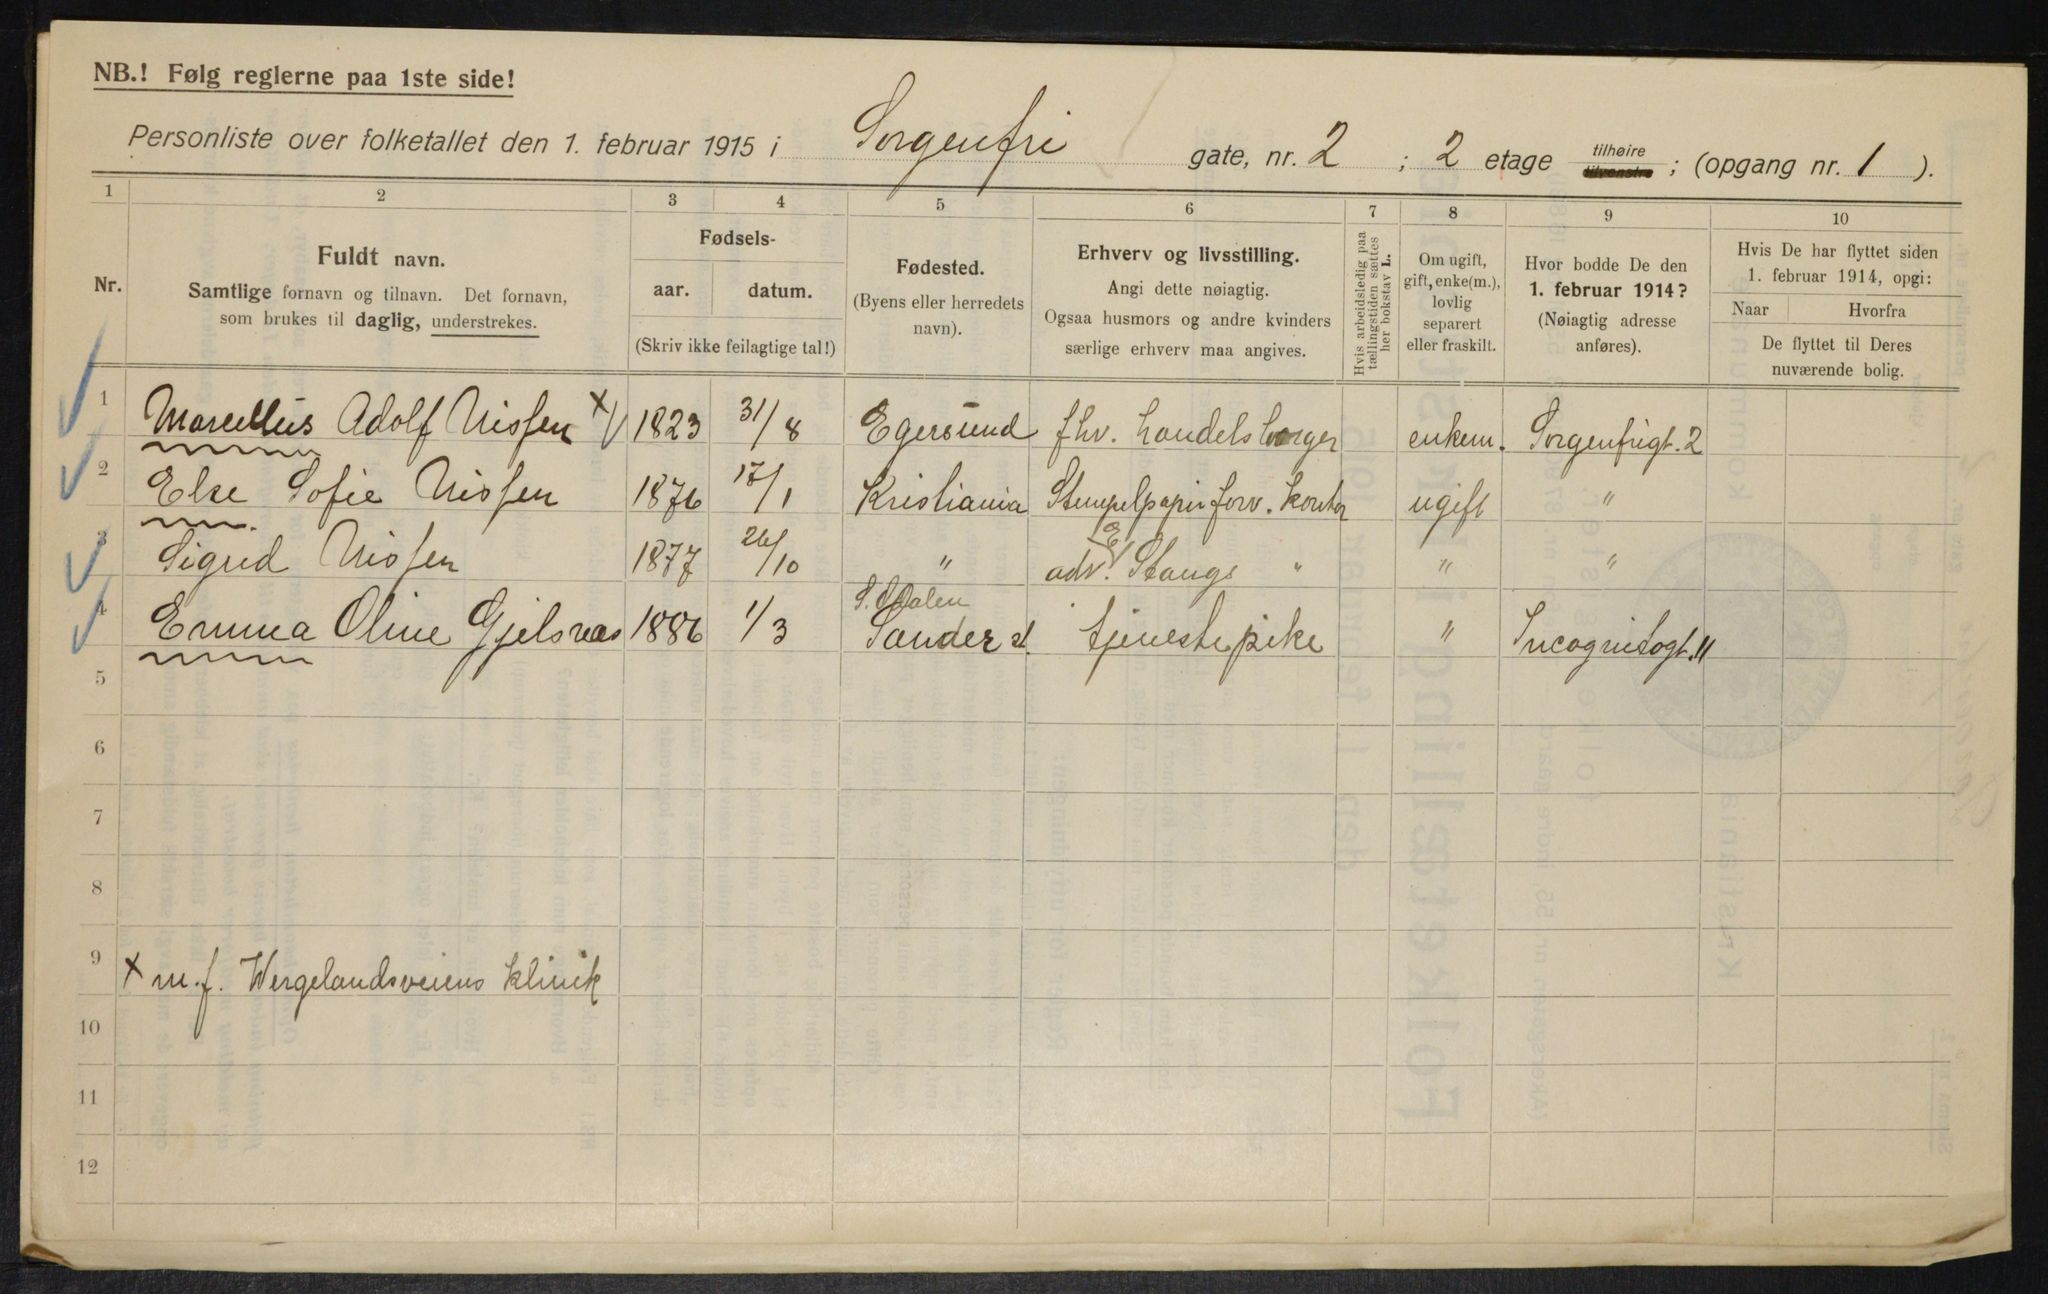 NB.! Følg reglerne paa 1ste side!
Personliste over folketallet den 1. februar 1915 i Sorgenfri gate, nr. 2 ; 2 etage tilhøire tilvenstre ; (opgang nr. 1 ).
1 2 3 4 5 6 7 8 9 10
Nr.
Fuldt navn.
Samtlige fornavn og tilnavn. Det fornavn,
som brukes til daglig, understrekes.
Fødsels-
aar. datum.
(Skriv ikke feilagtige tal!)
Fødested.
(Byens eller herredets
navn).
Erhverv og livsstilling.
Angi dette nøiagtig.
Ogsaa husmors og andre kvinders
særlige erhverv maa angives.
Hvis arbeidsledig paa
tællingstiden sættes
her bokstav L.
Om ugift,
gift, enke(m.),
lovlig
separert
eller fraskilt.
Hvor bodde De den
1. februar 1914?
(Nøiagtig adresse
anføres).
Hvis De har flyttet siden
1. februar 1914, opgi:
Naar Hvorfra
De flyttet til Deres
nuværende bolig.
1 Marcellus Adolf Nissen x 1823 31/8 Egersund fhv. handelsborger enkem. Sorgenfrigt. 2
2 Else Sofie Nissen 1876 17/1 Kristiania Stempelpapirforv. kontor ugift "
3 Sigrid Nissen 1877 26/10 " adv. E Stangs " " "
4 Emma Oline Gjelsnæs 1886 1/3 Sander st. tjenestepike " Incognitogt. 11
5
6
7
8
9
x m.f. Wergelandsveiens klinik
10
11
12